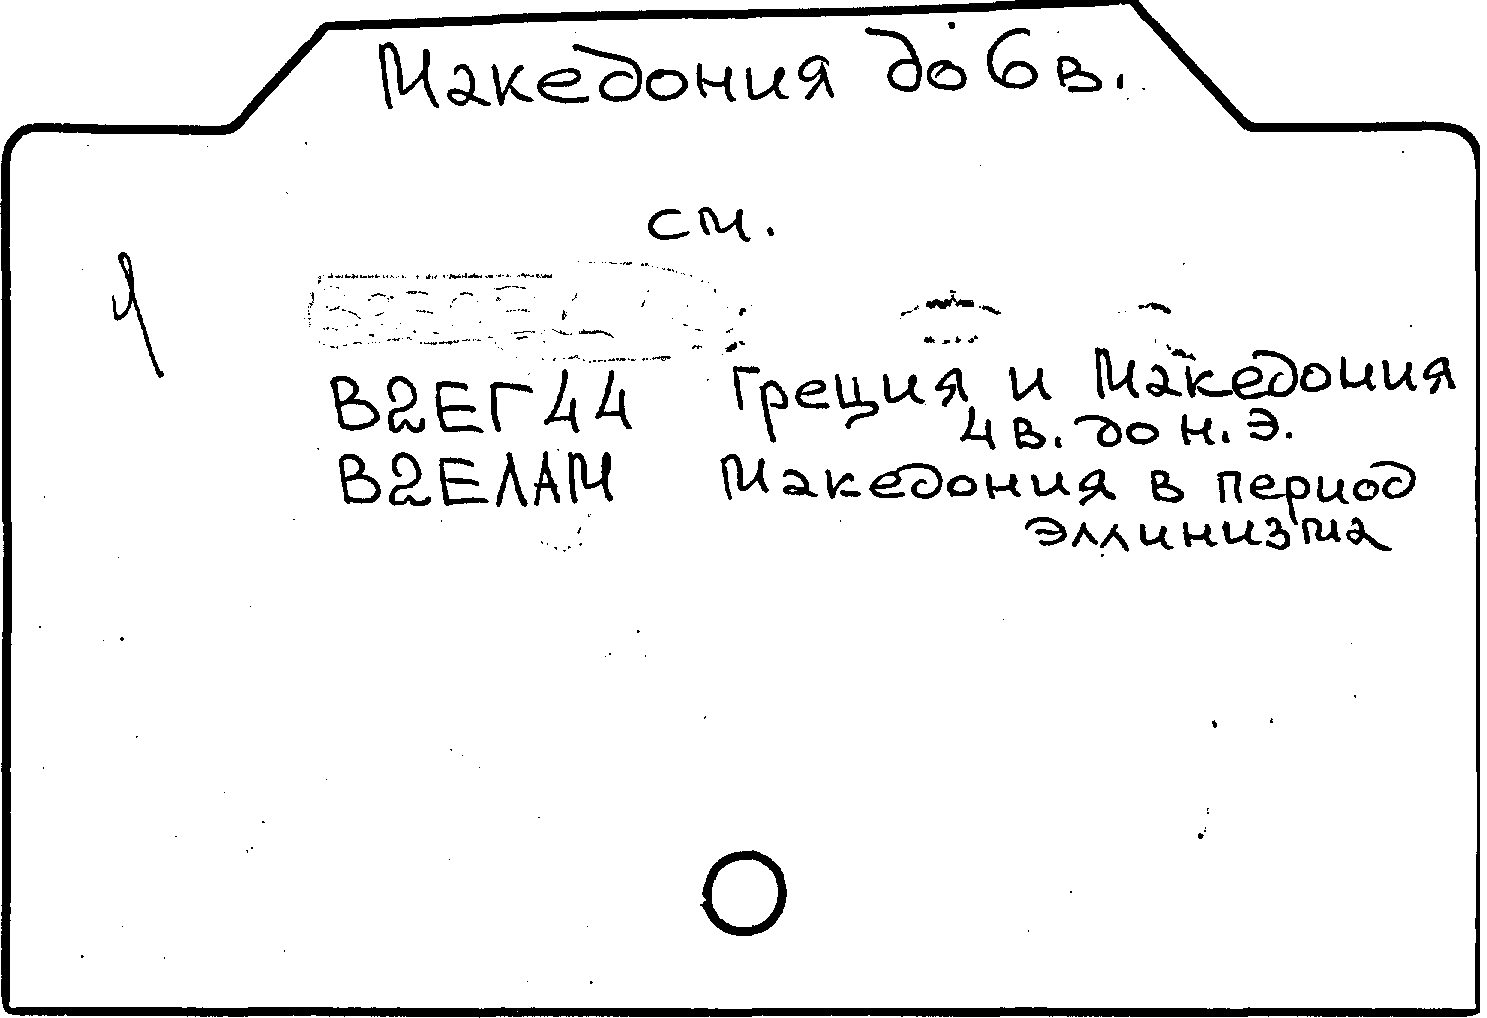 Македония до 6 в.
см.
В2ЕГ44 Греция и Македония
4 в. до н. э.
В2ЕЛАМ Македония в период
эллинизма